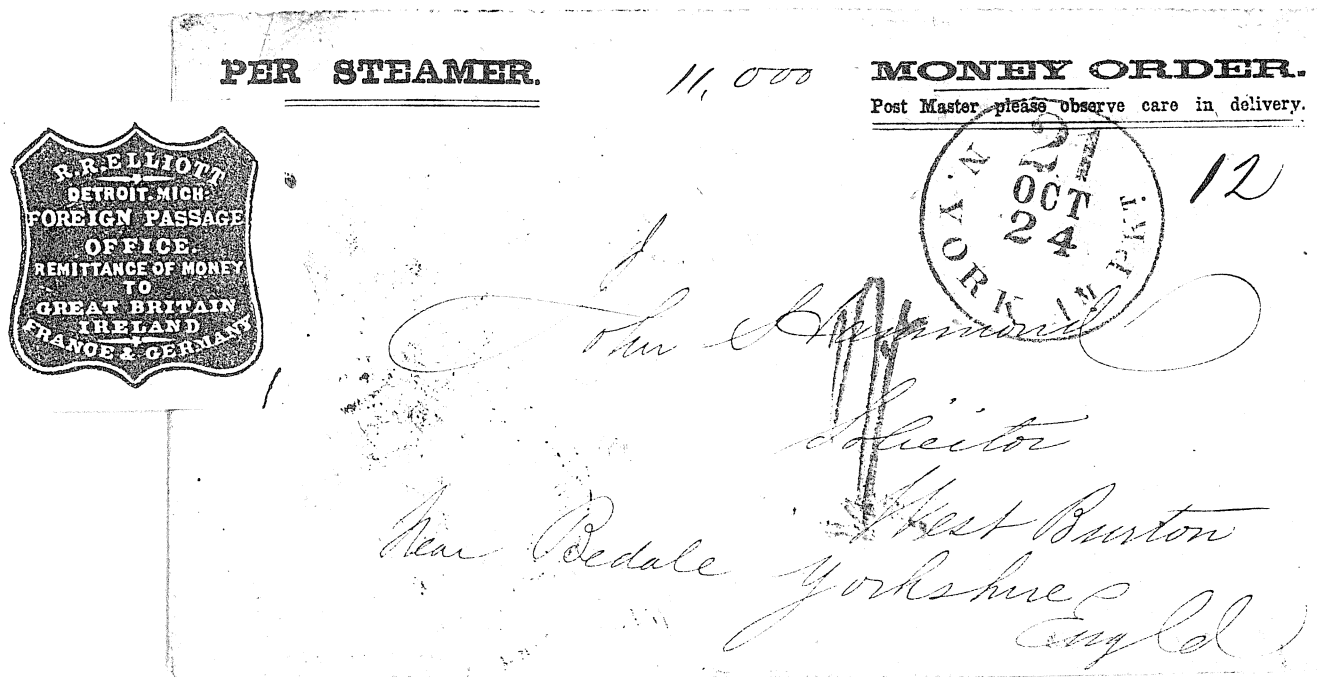 PER STEAMER.
11,000
MONEY ORDER.
Post Master please observe care in delivery.
R.R.ELLIOTT
DETROIT.MICH.
FOREIGN PASSAGE
OFFICE.
REMITTANCE OF MONEY
TO
GREAT BRITAIN
IRELAND
FRANCE & GERMANY
N. YORK AM PKT.
21
OCT
24
12
John Hammond
Solicitor
West Burton
Near Bedale Yorkshire
Engld